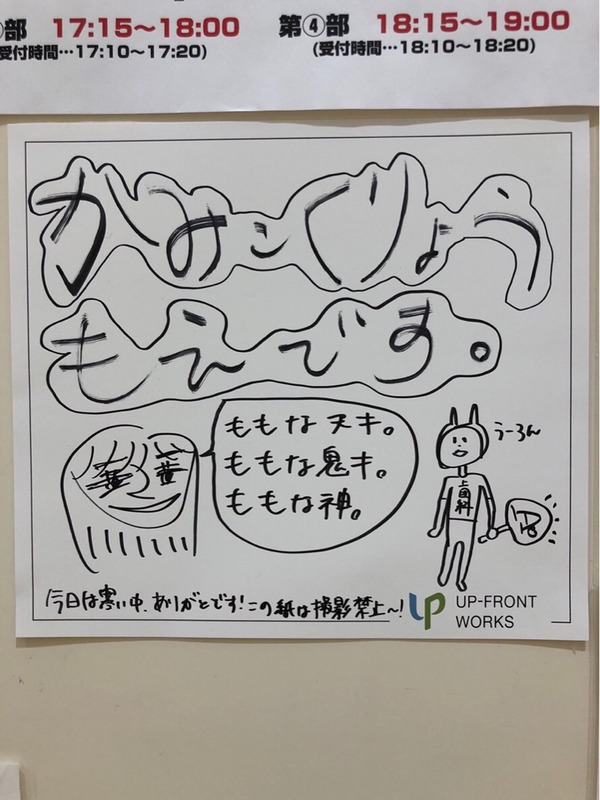 部 17:15～18:00
受付時間…17:10～17:20)
第④部 18:15～19:00
(受付時間…18:10～18:20)
かみこくりょう
もえです。
ももな天才。
ももな鬼才。
ももな神。
うーろん
上國料
今日は寒い中、ありがとです!この紙は撮影禁止～!
UP
UP-FRONT
WORKS